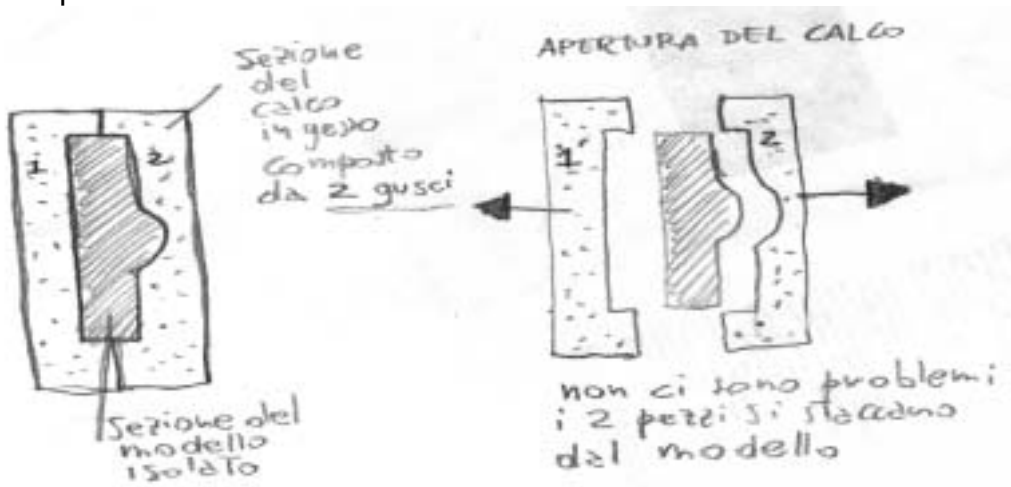 Sezione
del
calco
in gesso
composto
da 2 gusci
1
2
Sezione del
modello
isolato
APERTURA DEL CALCO
1
2
non ci sono problemi
i 2 pezzi si staccano
dal modello